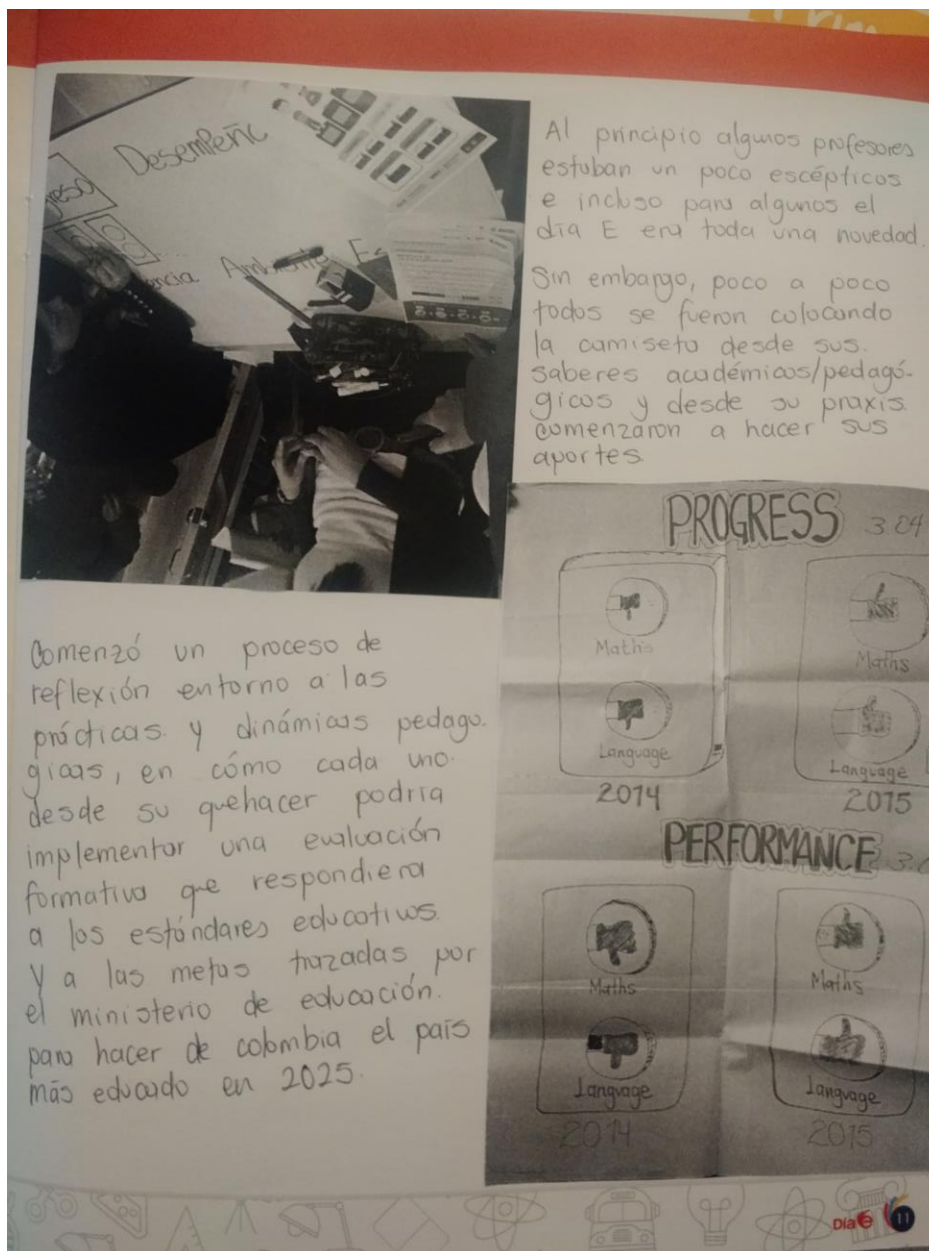 Desempeñ
Ambiente
Al principio algunos profesores
estaban un poco escépticos
e incluso para algunos el
día E era toda una novedad.
Sin embargo, poco a poco
todos se fueron colocando
la camiseta desde sus
saberes académicos/pedagó-
gicos y desde su praxis
comenzaron a hacer sus
aportes
Comenzó un proceso de
reflexión entorno a las
prácticas y dinámicas pedagó-
gicas, en cómo cada uno
desde su quehacer podría
implementar una evaluación
formativa que respondiera
a los estándares educativos
y a las metas trazadas por
el ministerio de educación.
para hacer de colombia el país
más educado en 2025.
PROGRESS 3.04
Maths Maths
Language Language
2014 2015
PERFORMANCE
Maths Maths
Language Language
2014 2015
Día e 11